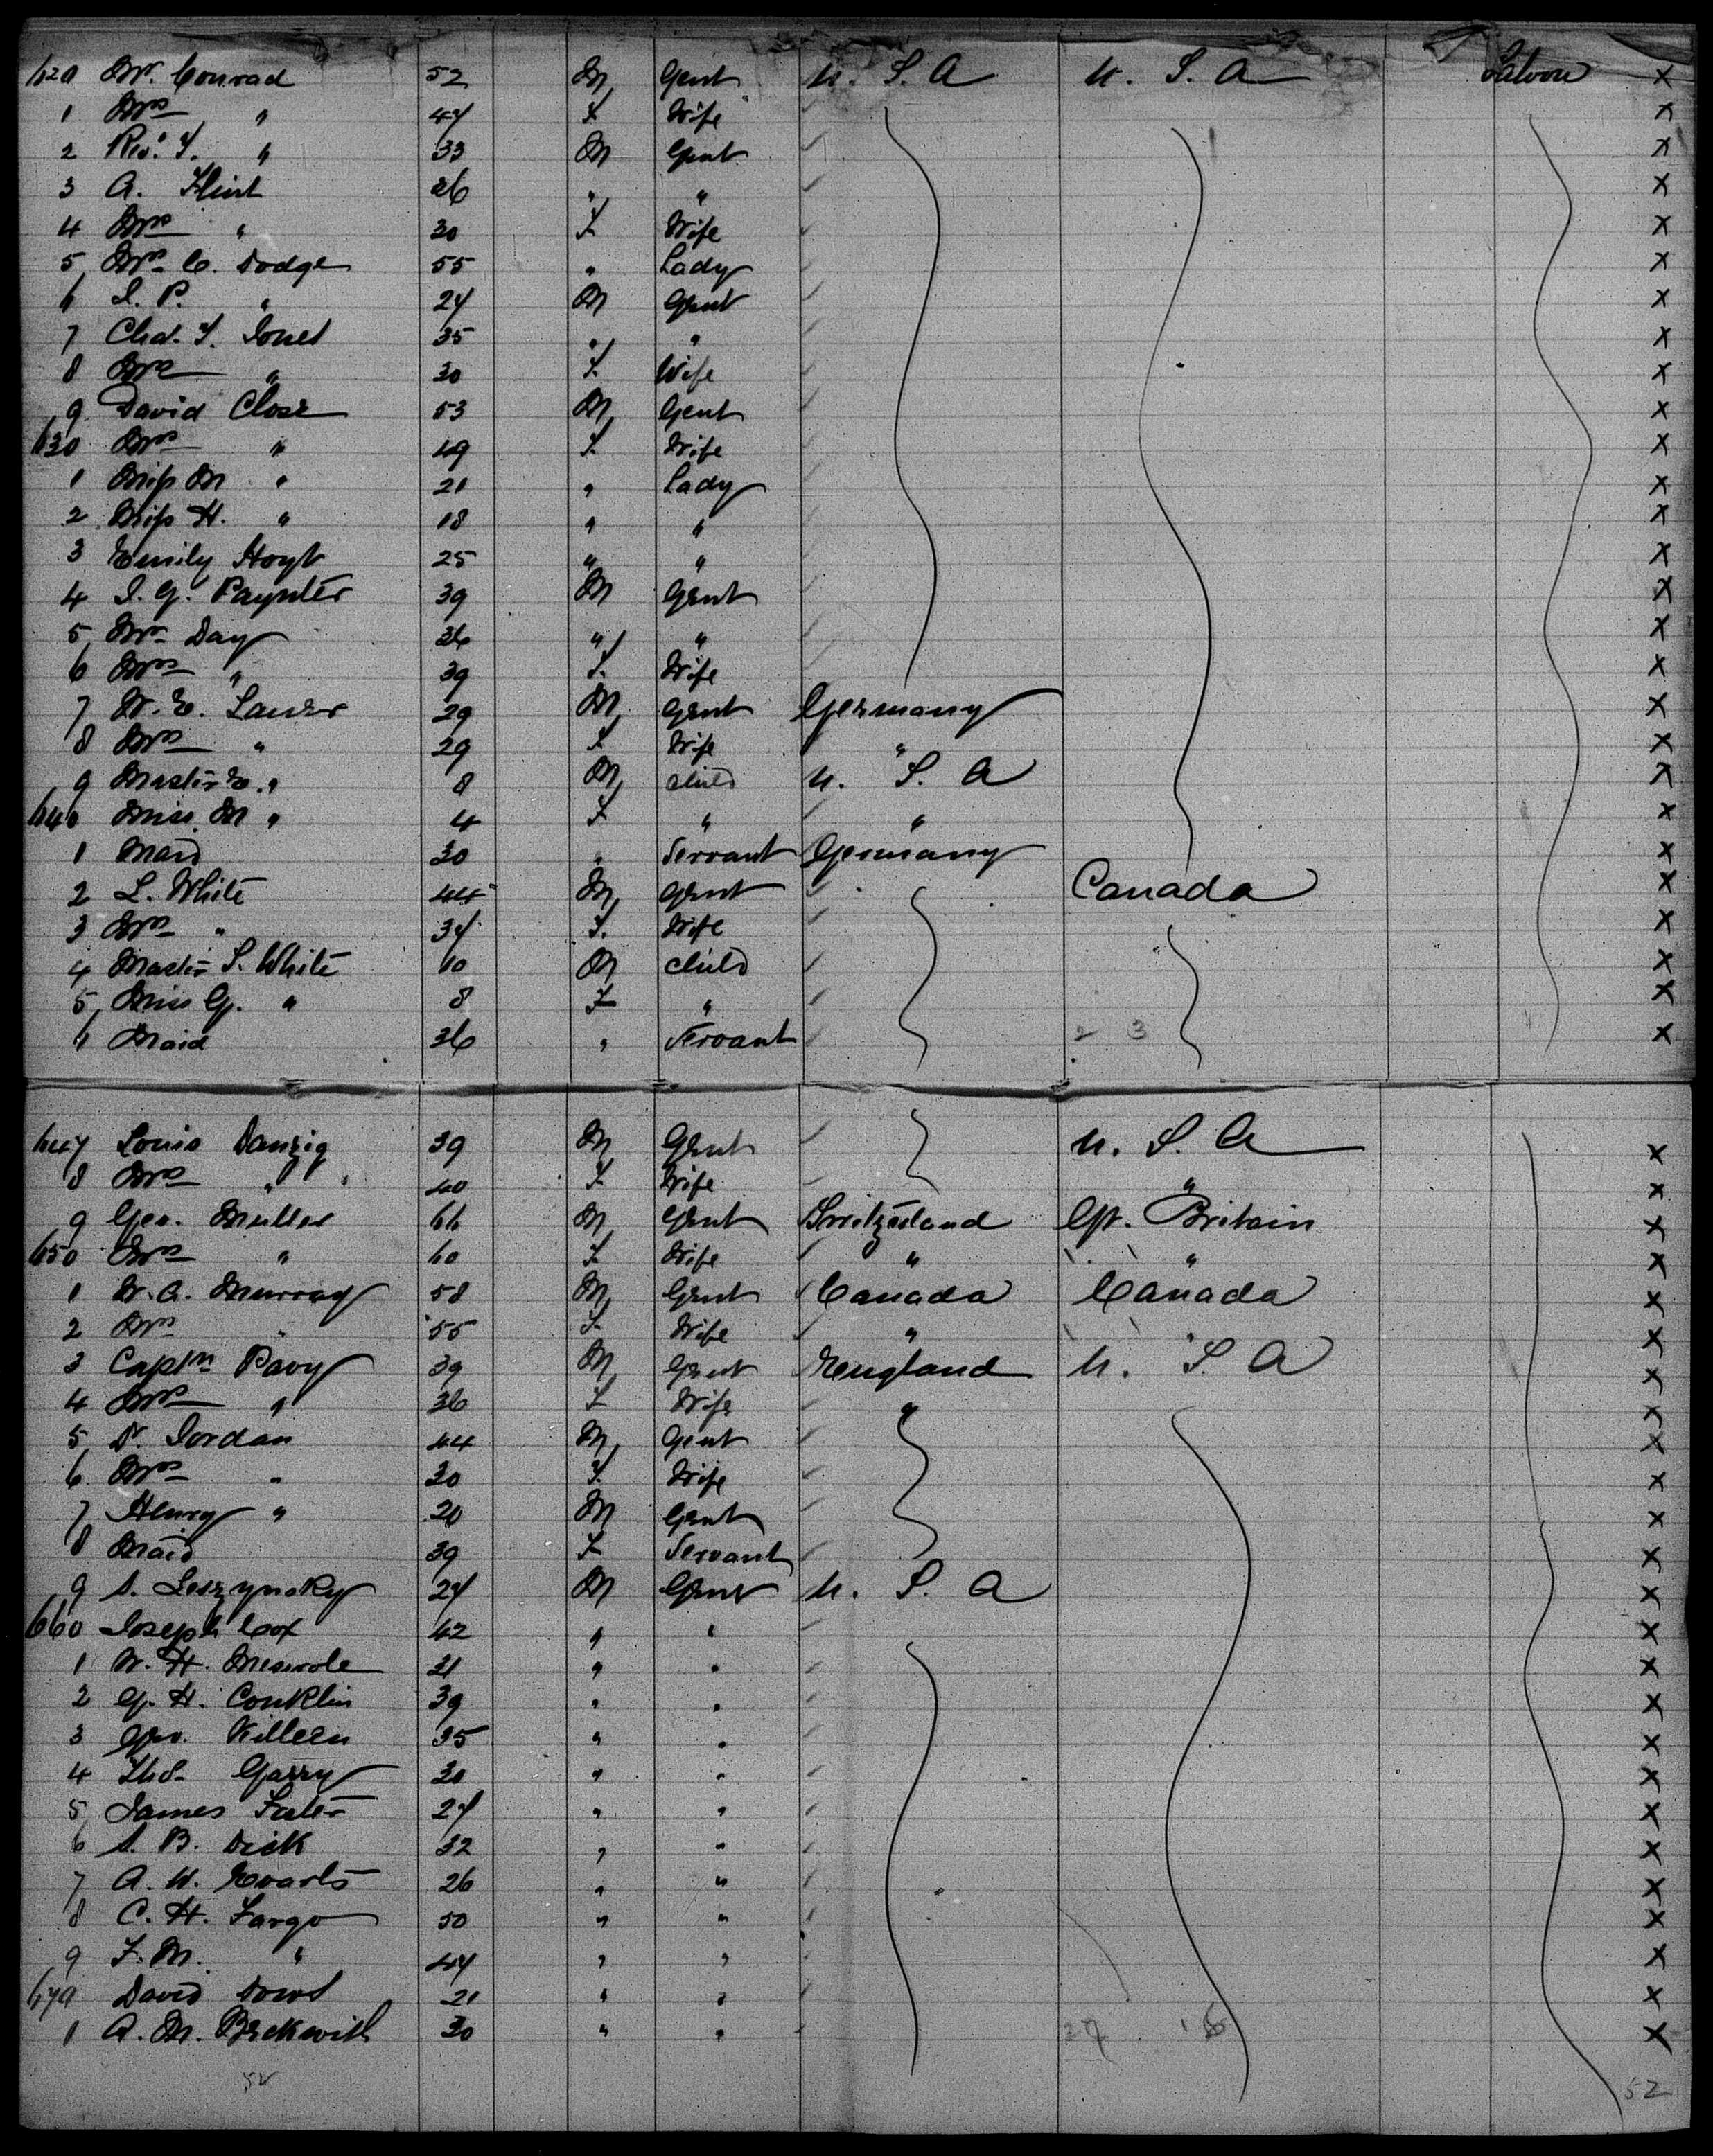 620 Mr. Conrad 52 M Gent U. S. A U. S. A Saloon X
1 Mrs " 47 F Wife X
2 Rev. F. " 33 M Gent X
3 A. Flint 26 " " X
4 Mrs " 30 F Wife X
5 Mrs C. Dodge 55 " Lady X
6 I. P. " 24 M Gent X
7 Chas. F. Jones 35 " " X
8 Mrs " 30 F. Wife X
9 David Close 53 M Gent X
630 Mrs " 49 F. Wife X
1 Miss M " 21 " Lady X
2 Miss H. " 18 " " X
3 Emily Hoyt 25 " " X
4 I. G. Paynter 39 M Gent X
5 Mr Day 36 " " X
6 Mrs " 39 F. Wife X
7 W. E. Lauer 29 M Gent Germany X
8 Mrs " 29 F Wife " X
9 Master E. " 8 M child U. S. A X
640 Miss M " 4 F " " X
1 Maid 30 " Servant Germany X
2 L. White 44 M Gent Canada X
3 Mrs " 34 F. Wife X
4 Master S. White 10 M child X
5 Miss G. " 8 F " X
6 Maid 36 " Servant 2 3 X
647 Louis Danzig 39 M Gent U. S. A X
8 Mrs " 40 F Wife " X
9 Geo. Muller 66 M Gent Switzerland Gt. Britain X
650 Mrs " 60 F Wife " " X
1 W. A. Murray 58 M Gent Canada Canada X
2 Mrs " 55 F Wife " " X
3 Captn Pavy 39 M Gent England U. S. A X
4 Mrs " 36 F Wife " X
5 D. Jordan 44 M Gent X
6 Mrs " 30 F. Wife X
7 Henry " 20 M Gent X
8 Maid 39 F Servant X
9 S. Leszynsky 24 M Gent U. S. A X
660 Joseph Cox 42 " " X
1 W. H. Meserole 21 " " X
2 G. H. Conklin 39 " " X
3 Geo. Killeen 35 " " X
4 Thos. Garry 30 " " X
5 James 24 " " X
6 S. B. Dick 32 " " X
7 A. W. Evarts 26 " " X
8 C. H. Fargo 50 " " X
9 F. M. " 44 " " X
670 David Dows 21 " " X
1 A. M. Beckwith 30 " " X
52 52